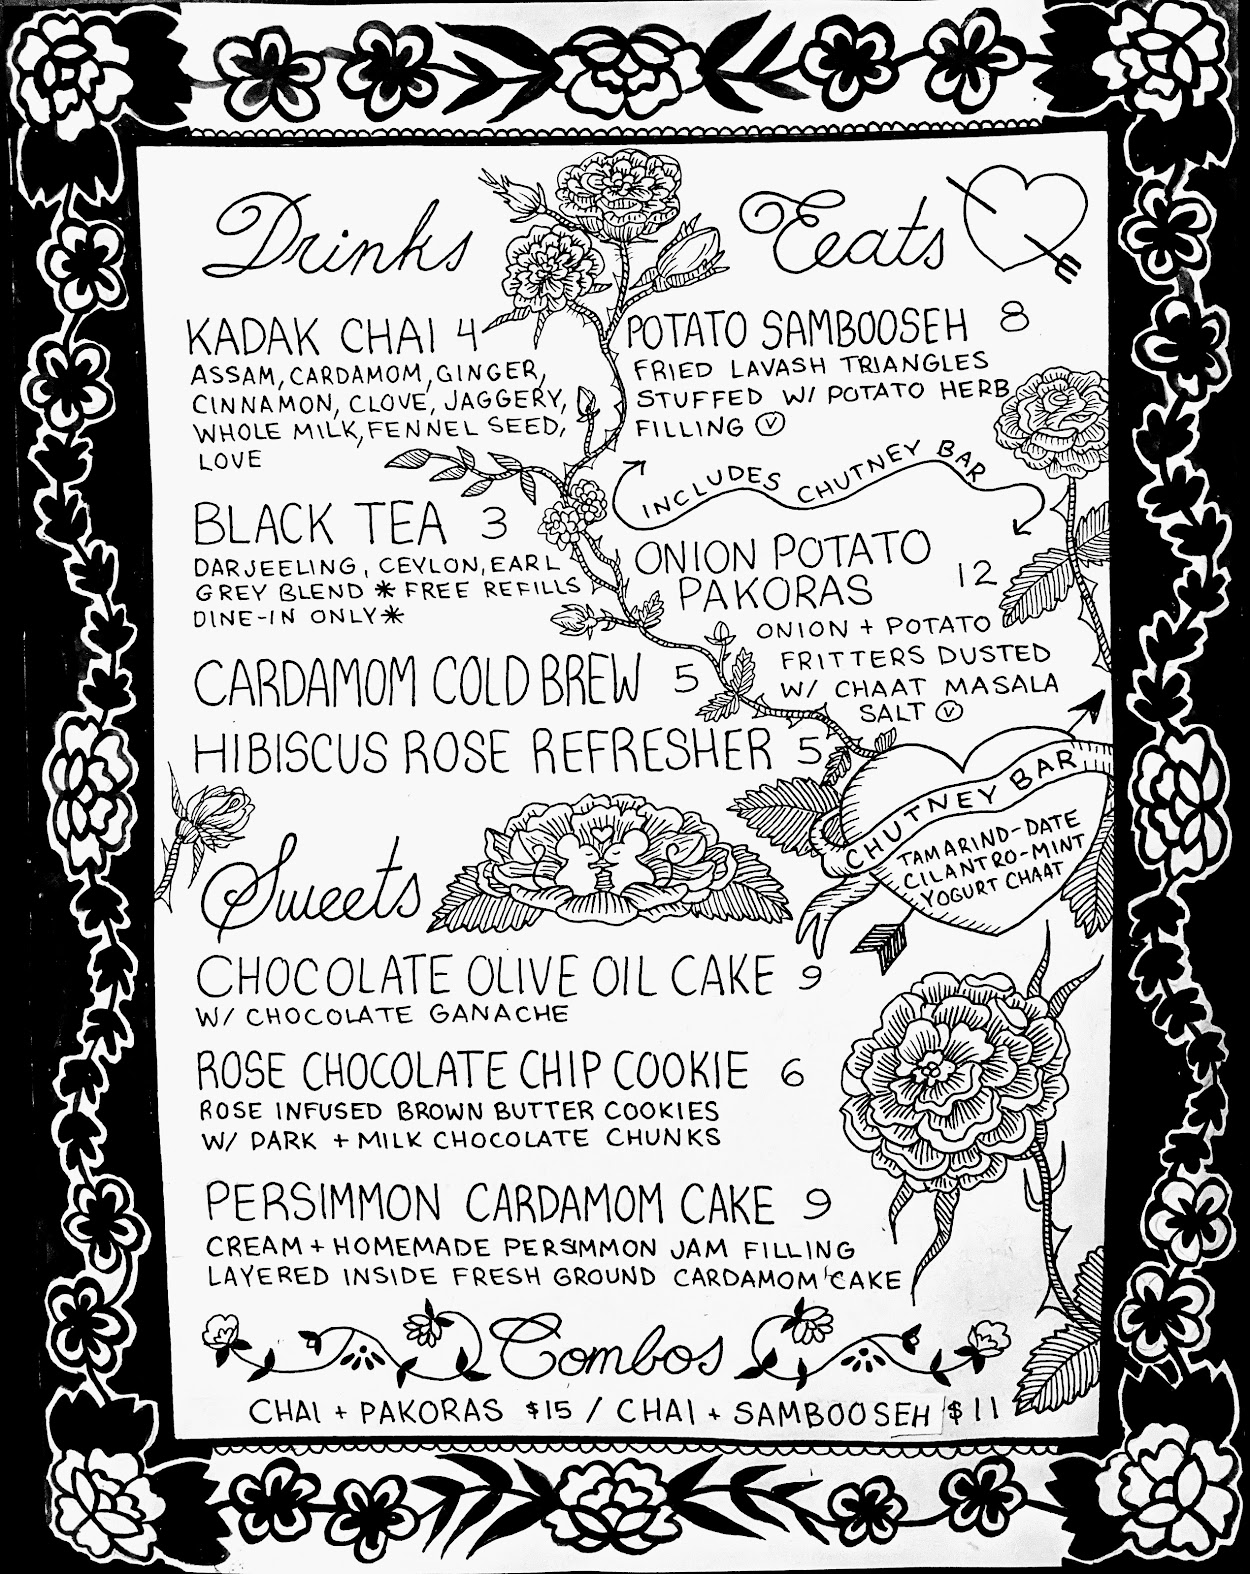 Drinks
KADAK CHAI 4
ASSAM, CARDAMOM, GINGER,
CINNAMON, CLOVE, JAGGERY,
WHOLE MILK, FENNEL SEED,
LOVE
BLACK TEA 3
DARJEELING, CEYLON, EARL
GREY BLEND * FREE REFILLS
DINE-IN ONLY *
CARDAMOM COLD BREW 5
HIBISCUS ROSE REFRESHER 5
Eeats
POTATO SAMBOOSEH 8
FRIED LAVASH TRIANGLES
STUFFED W/ POTATO HERB
FILLING Ⓥ
INCLUDES CHUTNEY BAR
ONION POTATO
PAKORAS 12
ONION + POTATO
FRITTERS DUSTED
W/ CHAAT MASALA
SALT Ⓥ
CHUTNEY BAR
TAMARIND-DATE
CILANTRO-MINT
YOGURT CHAAT
Sweets
CHOCOLATE OLIVE OIL CAKE 9
W/ CHOCOLATE GANACHE
ROSE CHOCOLATE CHIP COOKIE 6
ROSE INFUSED BROWN BUTTER COOKIES
W/ DARK + MILK CHOCOLATE CHUNKS
PERSIMMON CARDAMOM CAKE 9
CREAM + HOMEMADE PERSIMMON JAM FILLING
LAYERED INSIDE FRESH GROUND CARDAMOM CAKE
Combos
CHAI + PAKORAS $15 / CHAI + SAMBOOSEH $11